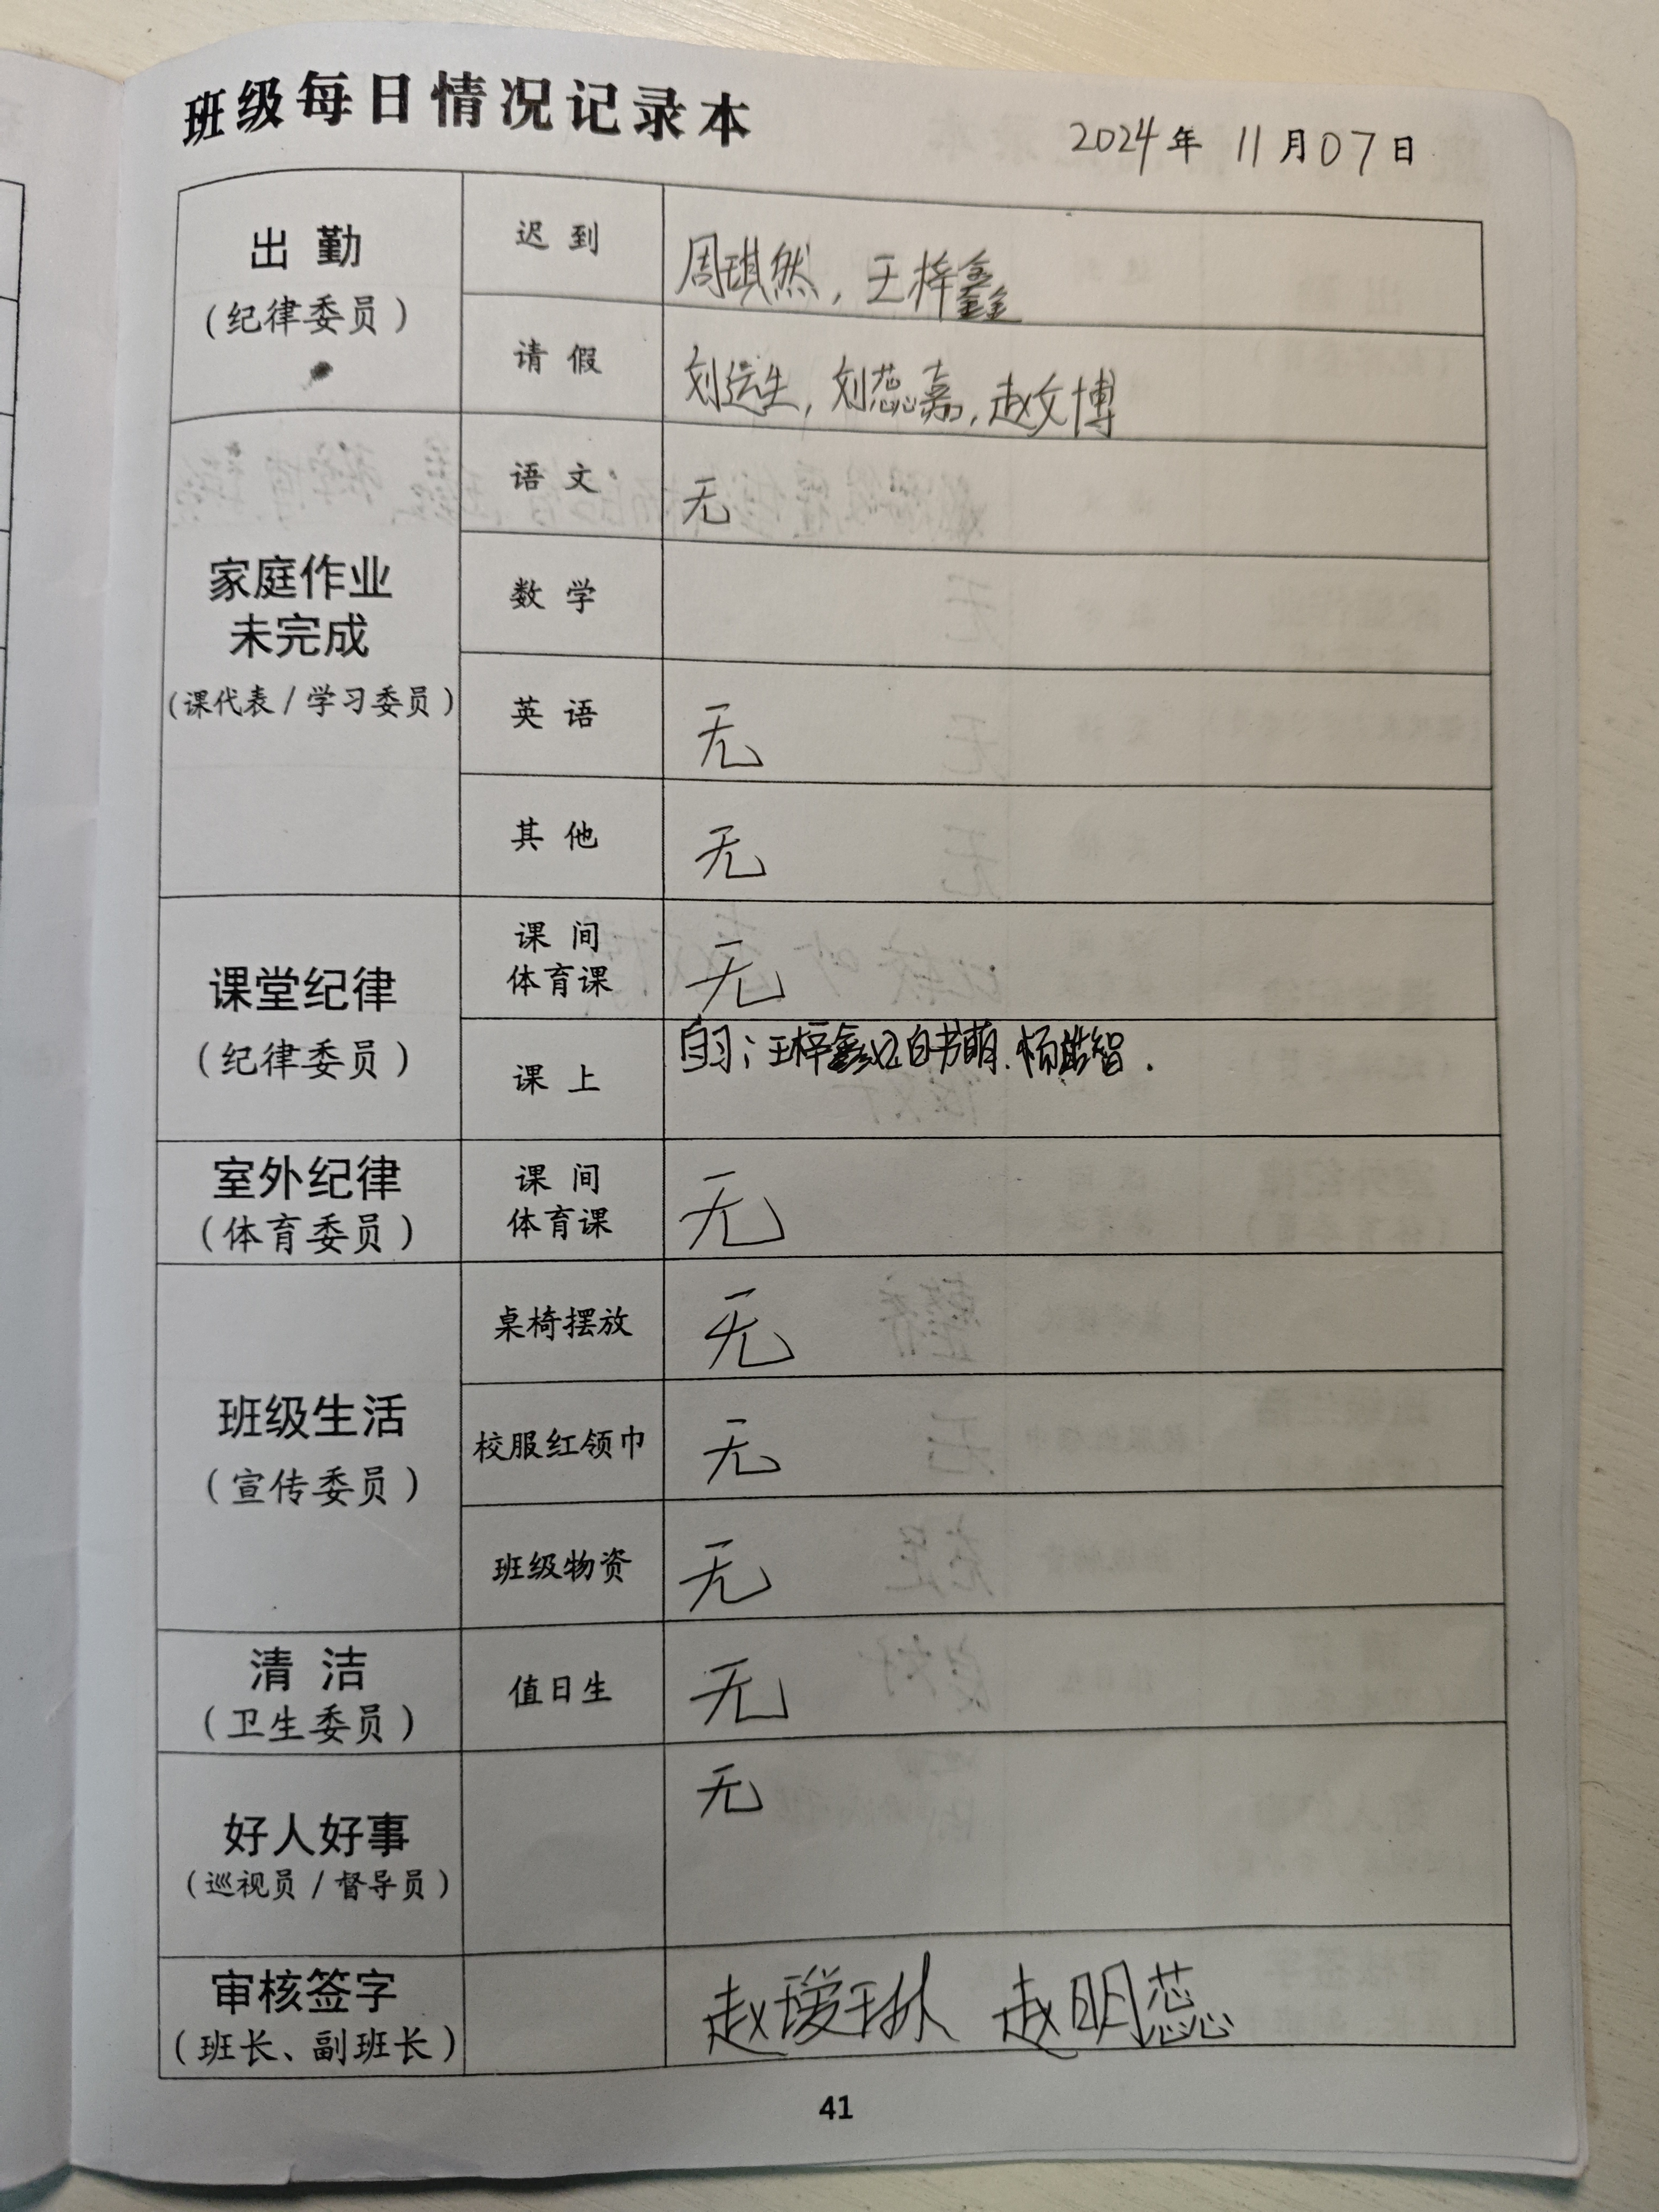 班级每日情况记录本
2024年 11月07日
出勤
(纪律委员)
迟到
周琪然，王梓鑫
请假
刘运生，刘蕊嘉，赵文博
家庭作业
未完成
(课代表/学习委员)
语文
无
数学
英语
无
其他
无
课堂纪律
(纪律委员)
课间
体育课
无
课上
自习；王梓鑫 白书萌.杨皓智.
室外纪律
(体育委员)
课间
体育课
无
班级生活
(宣传委员)
桌椅摆放
无
校服红领巾
无
班级物资
无
清洁
(卫生委员)
值日生
无
好人好事
(巡视员/督导员)
无
审核签字
(班长、副班长)
赵瑷琳 赵明蕊
41